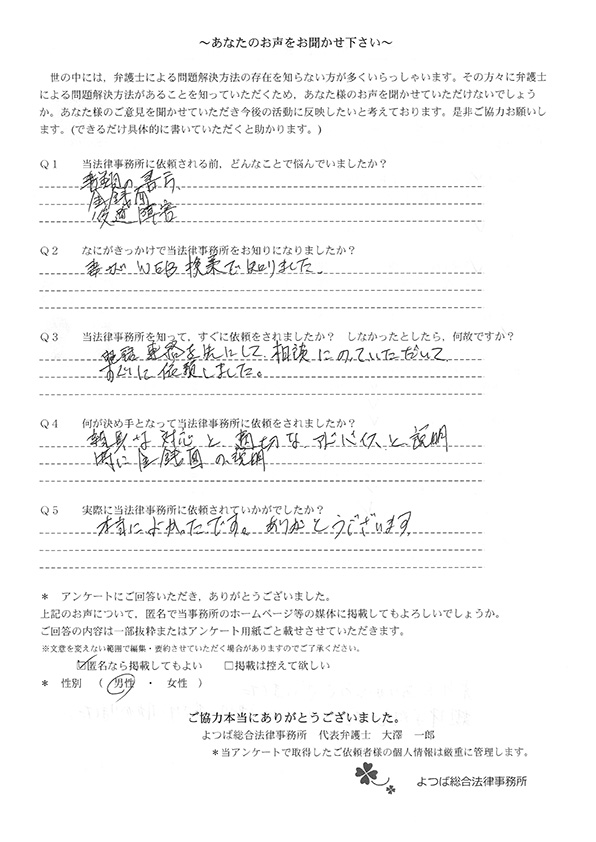 ～あなたのお声をお聞かせ下さい～
世の中には、弁護士による問題解決方法の存在を知らない方が多くいらっしゃいます。その方々に弁護士
による問題解決方法があることを知っていただくため、あなた様のお声を聞かせていただけないでしょう
か。あなた様のご意見を聞かせていただき今後の活動に反映したいと考えております。是非ご協力お願いし
ます。(できるだけ具体的に書いていただくと助かります。)
Q1 当法律事務所に依頼される前，どんなことで悩んでいましたか？
の書き方、
金銭面
後遺障害
Q2 なにがきっかけで当法律事務所をお知りになりましたか？
妻がWEB検索で知りました。
Q3 当法律事務所を知って，すぐに依頼をされましたか？ しなかったとしたら，何故ですか？
電話連絡を先にして相談にのっていただいて
すぐに依頼しました。
Q4 何が決め手となって当法律事務所に依頼をされましたか？
親身な対応と適切なアドバイスと説明
特に金銭面の説明
Q5 実際に当法律事務所に依頼されていかがでしたか？
本当によかったです。ありがとうございます。
＊ アンケートにご回答いただき，ありがとうございました。
上記のお声について，匿名で当事務所のホームページ等の媒体に掲載してもよろしいでしょうか。
ご回答の内容は一部抜粋またはアンケート用紙ごと載せさせていただきます。
※文意を変えない範囲で編集・要約させていただく場合がありますのでご了承ください。
☑匿名なら掲載してもよい □掲載は控えて欲しい
＊ 性別 （ 男性 ・ 女性 ）
ご協力本当にありがとうございました。
よつば総合法律事務所 代表弁護士 大澤 一郎
＊当アンケートで取得したご依頼者様の個人情報は厳重に管理します。
よつば総合法律事務所